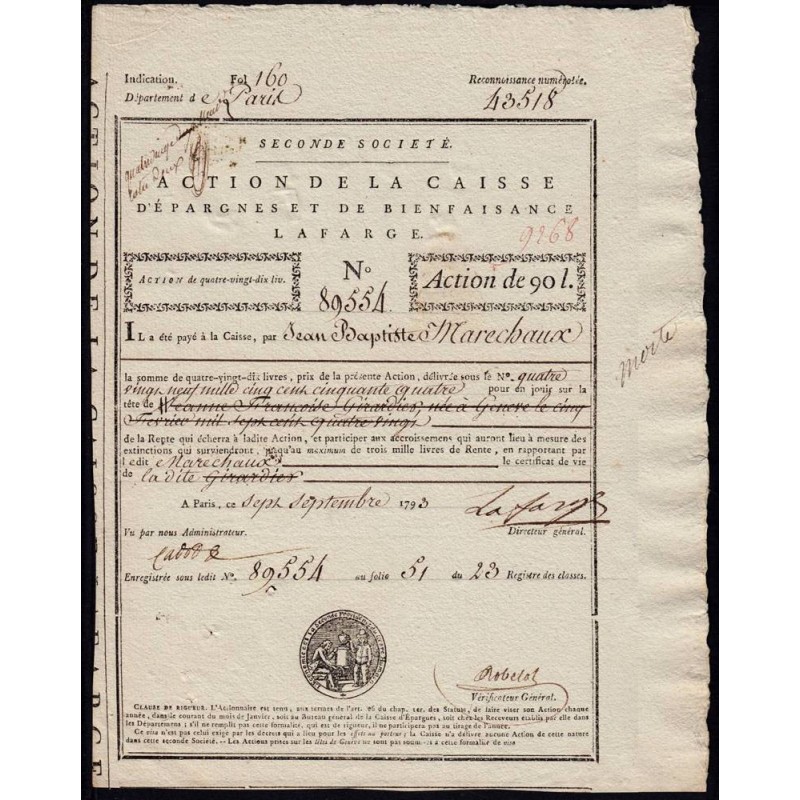 Indication. Fol 160 Reconnoissance numérotée.
Département de Paris 43518
SECONDE SOCIETÉ.
ACTION DE LA CAISSE
D'ÉPARGNES ET DE BIENFAISANCE
LAFARGE.
9268
ACTION de quatre-vingt-dix liv. No 89554 Action de 90 l.
IL a été payé à la Caisse, par Jean Baptiste Marechaux
la somme de quatre-vingt-dix livres, prix de la présente Action, délivrée sous le No. quatre
vingt neuf mille cinq cent cinquante quatre pour en jouir sur la
tête de Jeanne Françoise Girardier, née à Geneve le cinq
Fevrier mil sept cent quatre vingt
de la Rente qui écherra à ladite Action, et participer aux accroissemens qui auront lieu à mesure des
extinctions qui surviendront, jusqu'au maximum de trois mille livres de Rente, en rapportant par
ledit Marechaux le certificat de vie
de la dite Girardier
A Paris, ce sept septembre 1793 Lafarge
Vu par nous Administrateur. Directeur général.
Enregistrée sous ledit No. 89554 au folio 51 du 23 Registre des classes.
Robelot
Vérificateur Général.
CLAUSE DE RIGUEUR. L'Actionnaire est tenu, aux termes de l'art. 26 du chap. 1er. des Statuts, de faire viser son Action chaque
année, dans le courant du mois de Janvier, soit au Bureau général de la Caisse d'Épargnes, soit chez les Receveurs établis par elle dans
les Départemens; s'il ne remplit pas cette formalité, qui est de rigueur, il ne participera pas au tirage de l'année.
Ce visa n'est pas celui exigé par les décrets qui a lieu pour les effets au porteur; la Caisse n'a délivré aucune Action de cette nature
dans cette seconde Société. -- Les Actions prises sur les têtes de Genève ne sont pas soumises à cette formalité de visa
morte
ACTION DE LA CAISSE LAFARGE